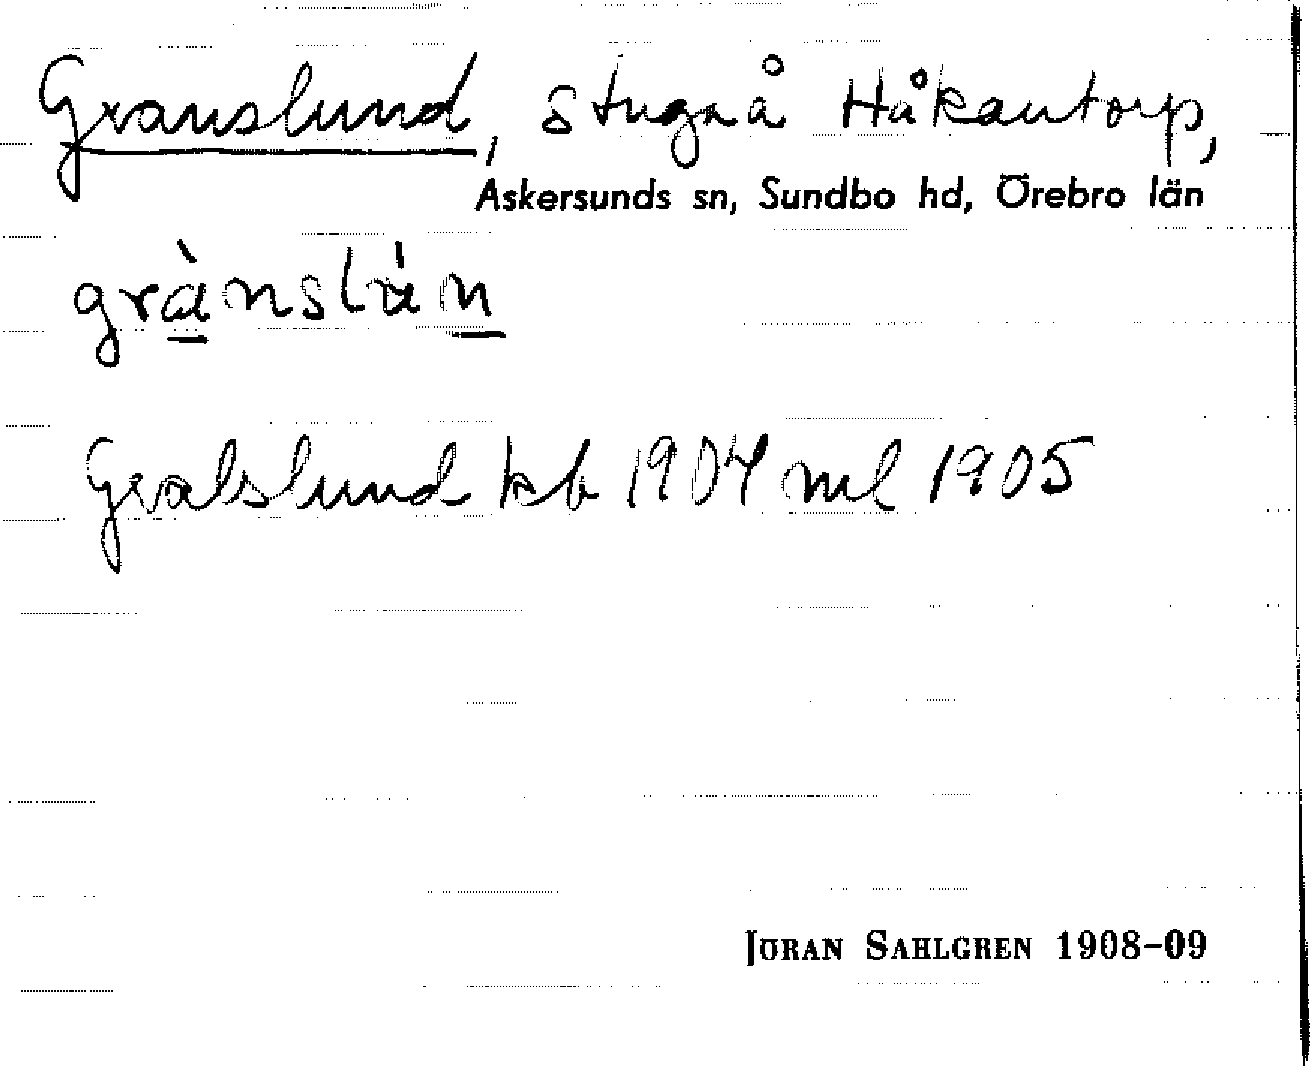 Granslund, stuga å Håkantorp,
Askersunds sn, Sundbo hd, Örebro län
grànslùn
Gralslund kb 1904 ml 1905
JÖRAN SAHLGREN 1908–09